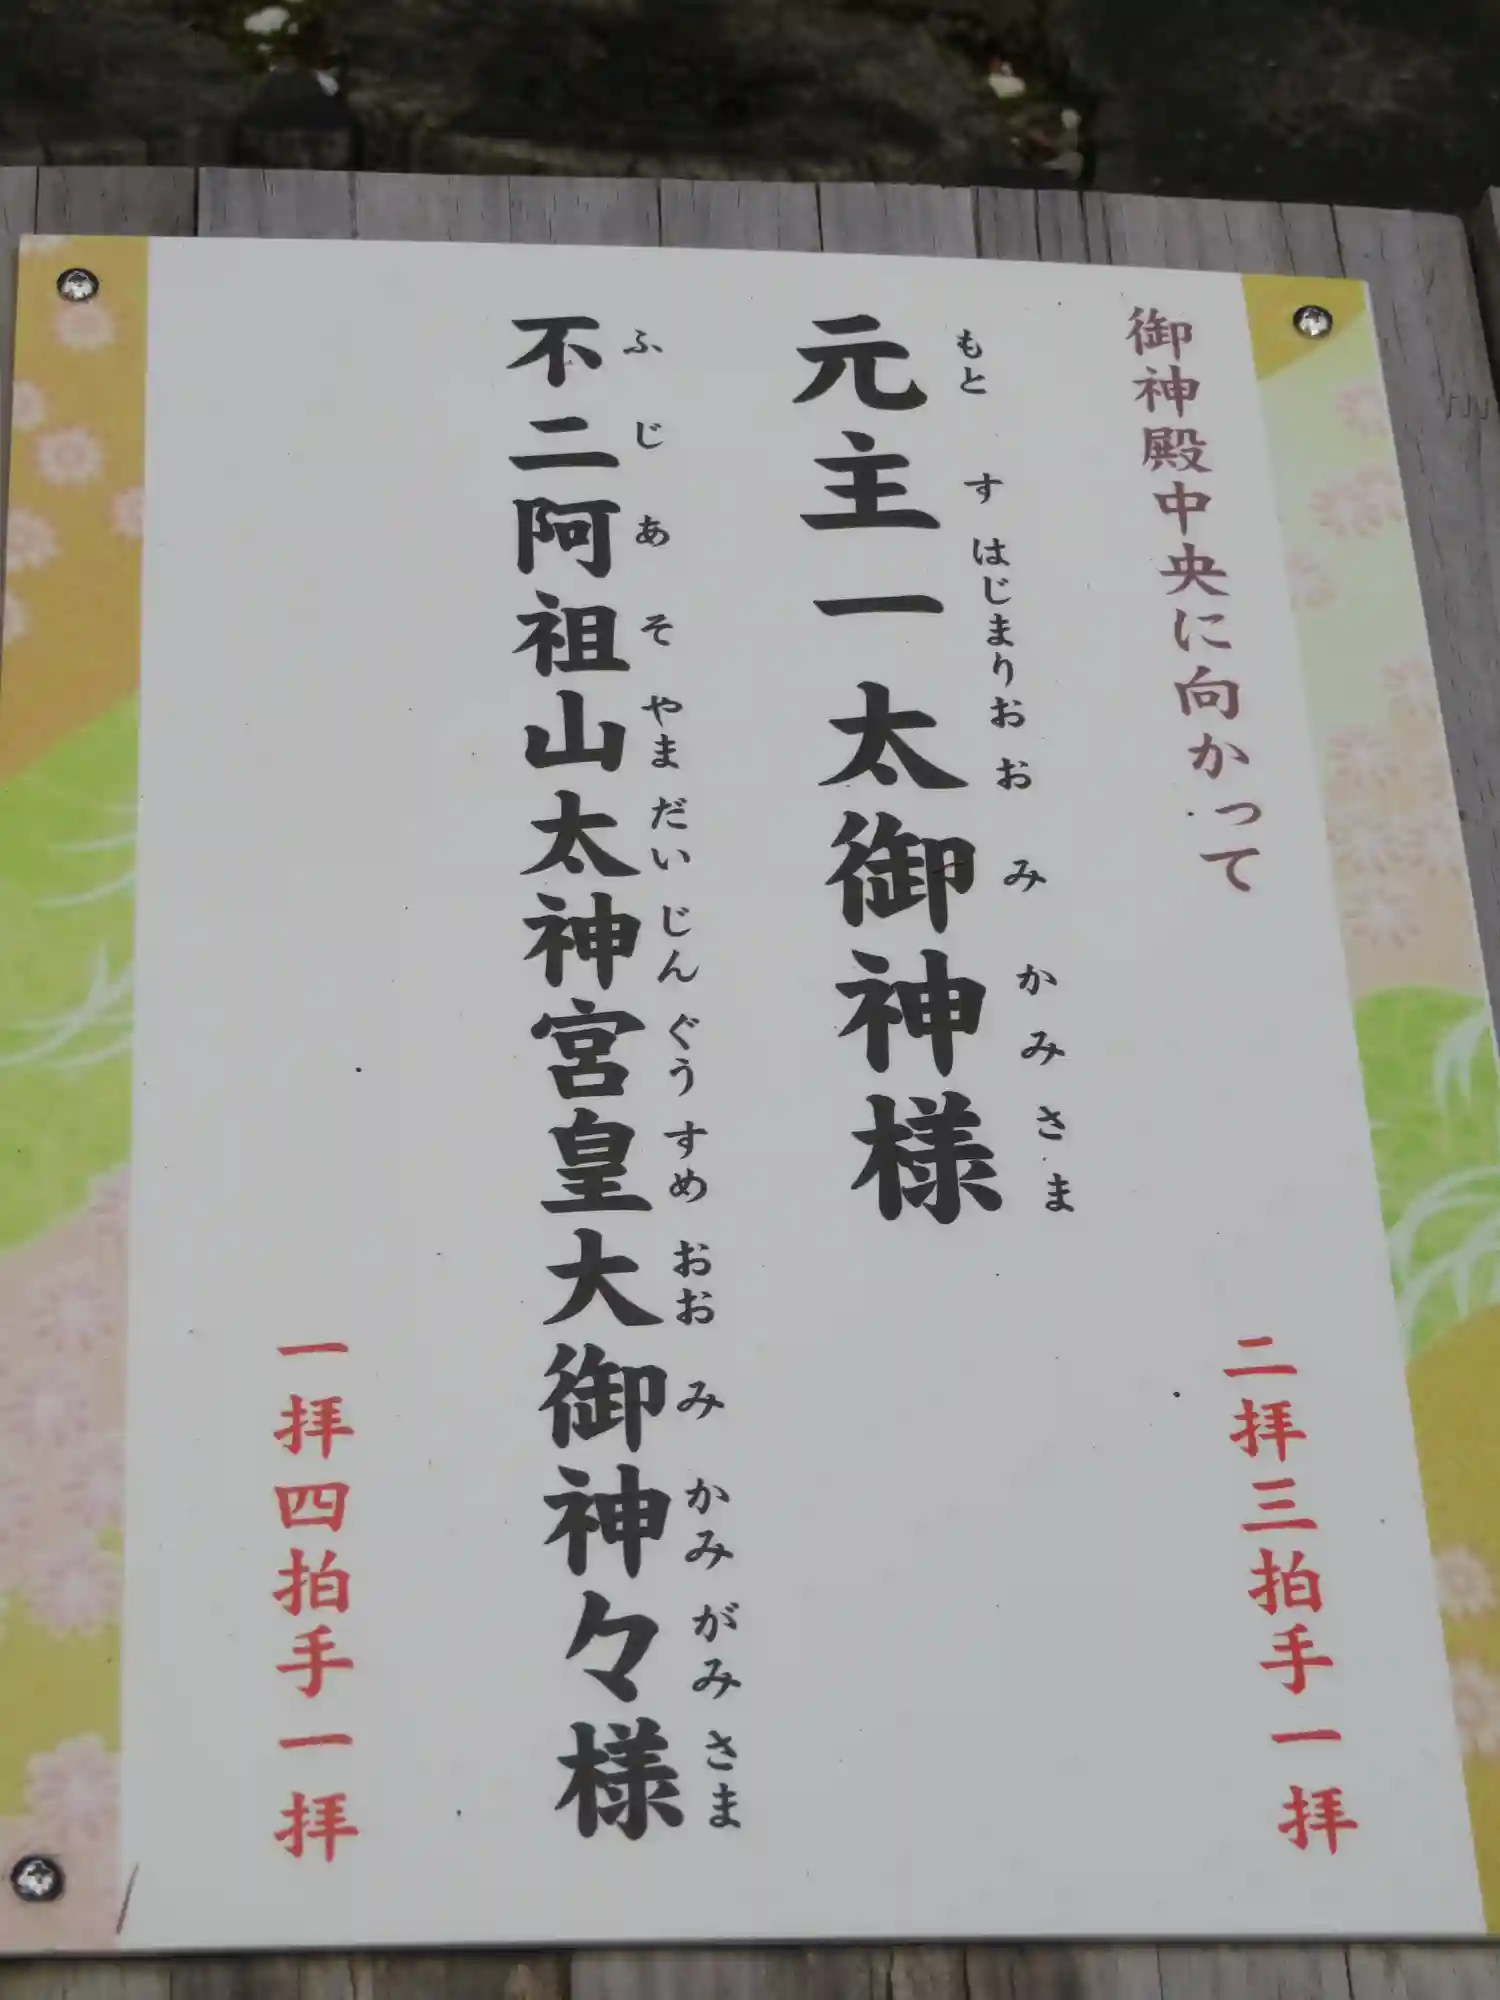 御神殿中央に向かって
二拝三拍手一拝
もと す はじまりおお おみかみさま
元主一太御神様
ふじあそやまだいじんぐうすめおおみかみがみさま
不二阿祖山太神宮皇大御神々様
一拝四拍手一拝